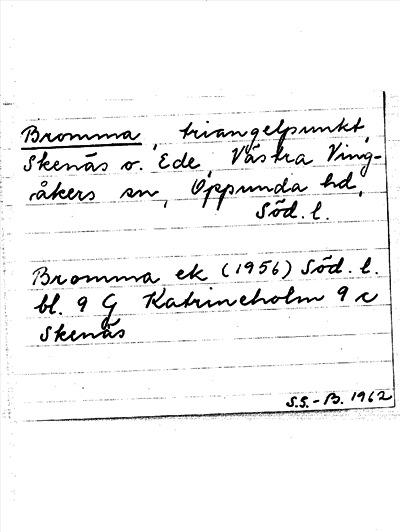 Bromma, triangelpunkt,
Skenäs o. Ede, Västra Ving-
åkers sn, Oppunda hd,
Söd. l.
Bromma ek (1956) Söd. l.
bl. 9 G Katrineholm 9 c
Skenäs
S.S.-B. 1962